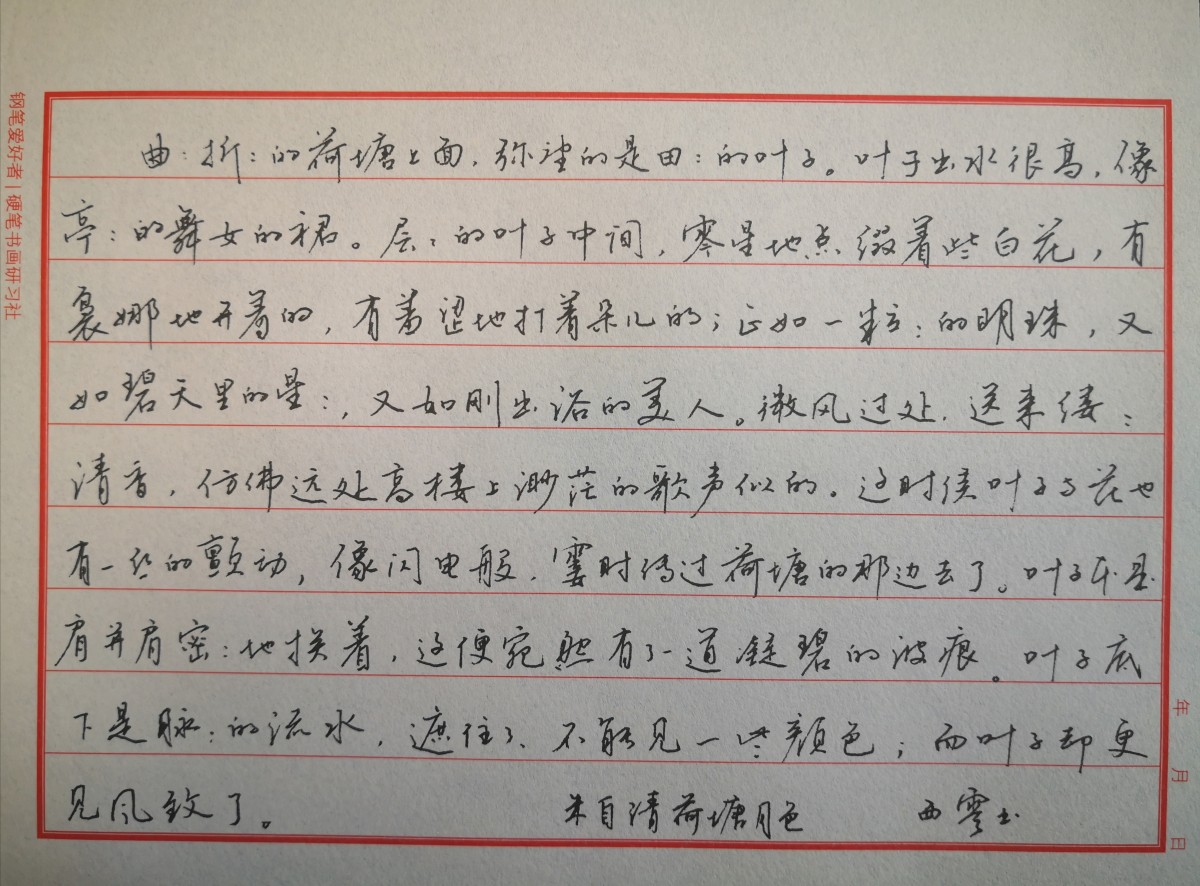 曲:折:的荷塘上面,弥望的是田:的叶子。叶子出水很高,像
亭:的舞女的裙。层:的叶子中间,零星地点缀着些白花,有
袅娜地开着的,有羞涩地打着朵儿的;正如一粒:的明珠,又
如碧天里的星:,又如刚出浴的美人。微风过处,送来缕:
清香,仿佛远处高楼上渺茫的歌声似的。这时候叶子与花也
有一丝的颤动,像闪电般,霎时传过荷塘的那边去了。叶子本是
肩并肩密:地挨着,这便宛然有了一道凝碧的波痕。叶子底
下是脉:的流水,遮住了,不能见一些颜色;而叶子却更
见风致了。
朱自清荷塘月色 西零书
钢笔爱好者|硬笔书画研习社
年 月 日